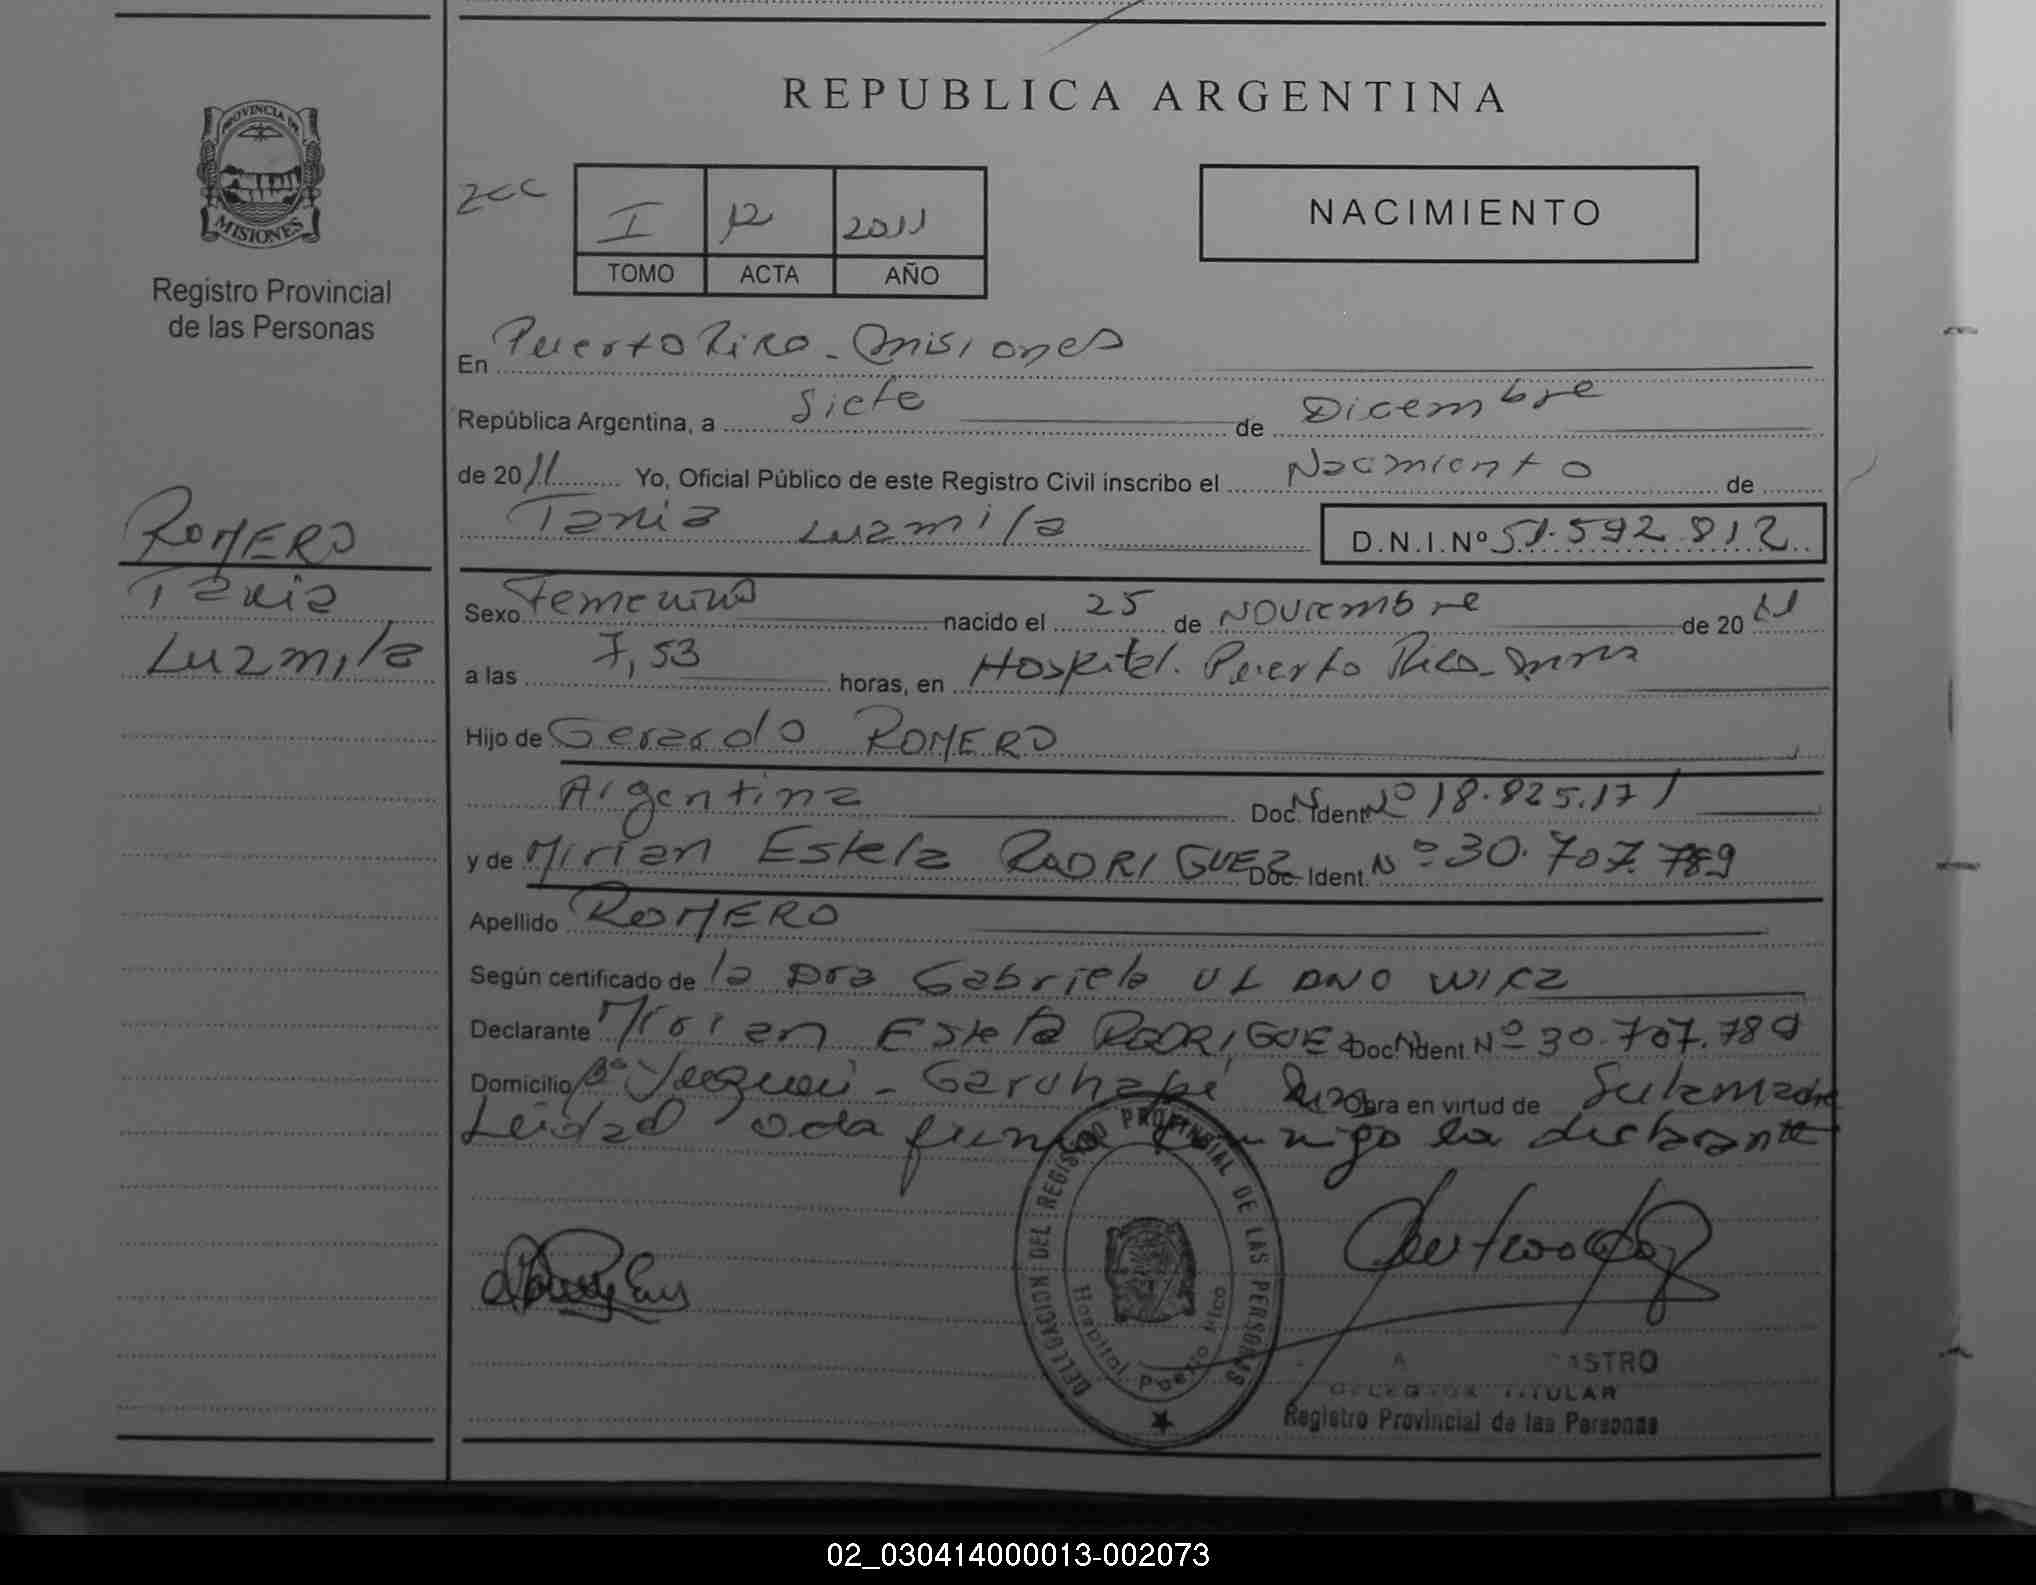 REPUBLICA ARGENTINA
PROVINCIA DE
MISIONES
Registro Provincial
de las Personas
I 12 2011
TOMO ACTA AÑO
NACIMIENTO
En Puerto Rico - Misiones
República Argentina, a Siete de Diciembre
de 2011 Yo, Oficial Público de este Registro Civil inscribo el Nacimiento de
Tania Luzmila D.N.I.Nº 51.592.812
ROMERO
Tania
Luzmila
Sexo Femenino nacido el 25 de Noviembre de 2011
a las 7,53 horas, en Hospital. Puerto Rico -
Hijo de Gerardo ROMERO
Argentina Doc. Ident. Nº 18.825.171
y de Mirian Estela RODRIGUEZ Doc. Ident. Nº 30.707.789
Apellido ROMERO
Según certificado de la Dra Gabriela
Declarante Mirian Estela RODRIGUEZ Doc. Ident. Nº 30.707.789
Domicilio Bº - Garuhapé Obra en virtud de Ser la madre
Leida firma conmigo la declarante
DELEGACION DEL REGISTRO PROVINCIAL DE LAS PERSONAS
Hospital Puerto Rico
TITULAR
Registro Provincial de las Personas
02_030414000013-002073